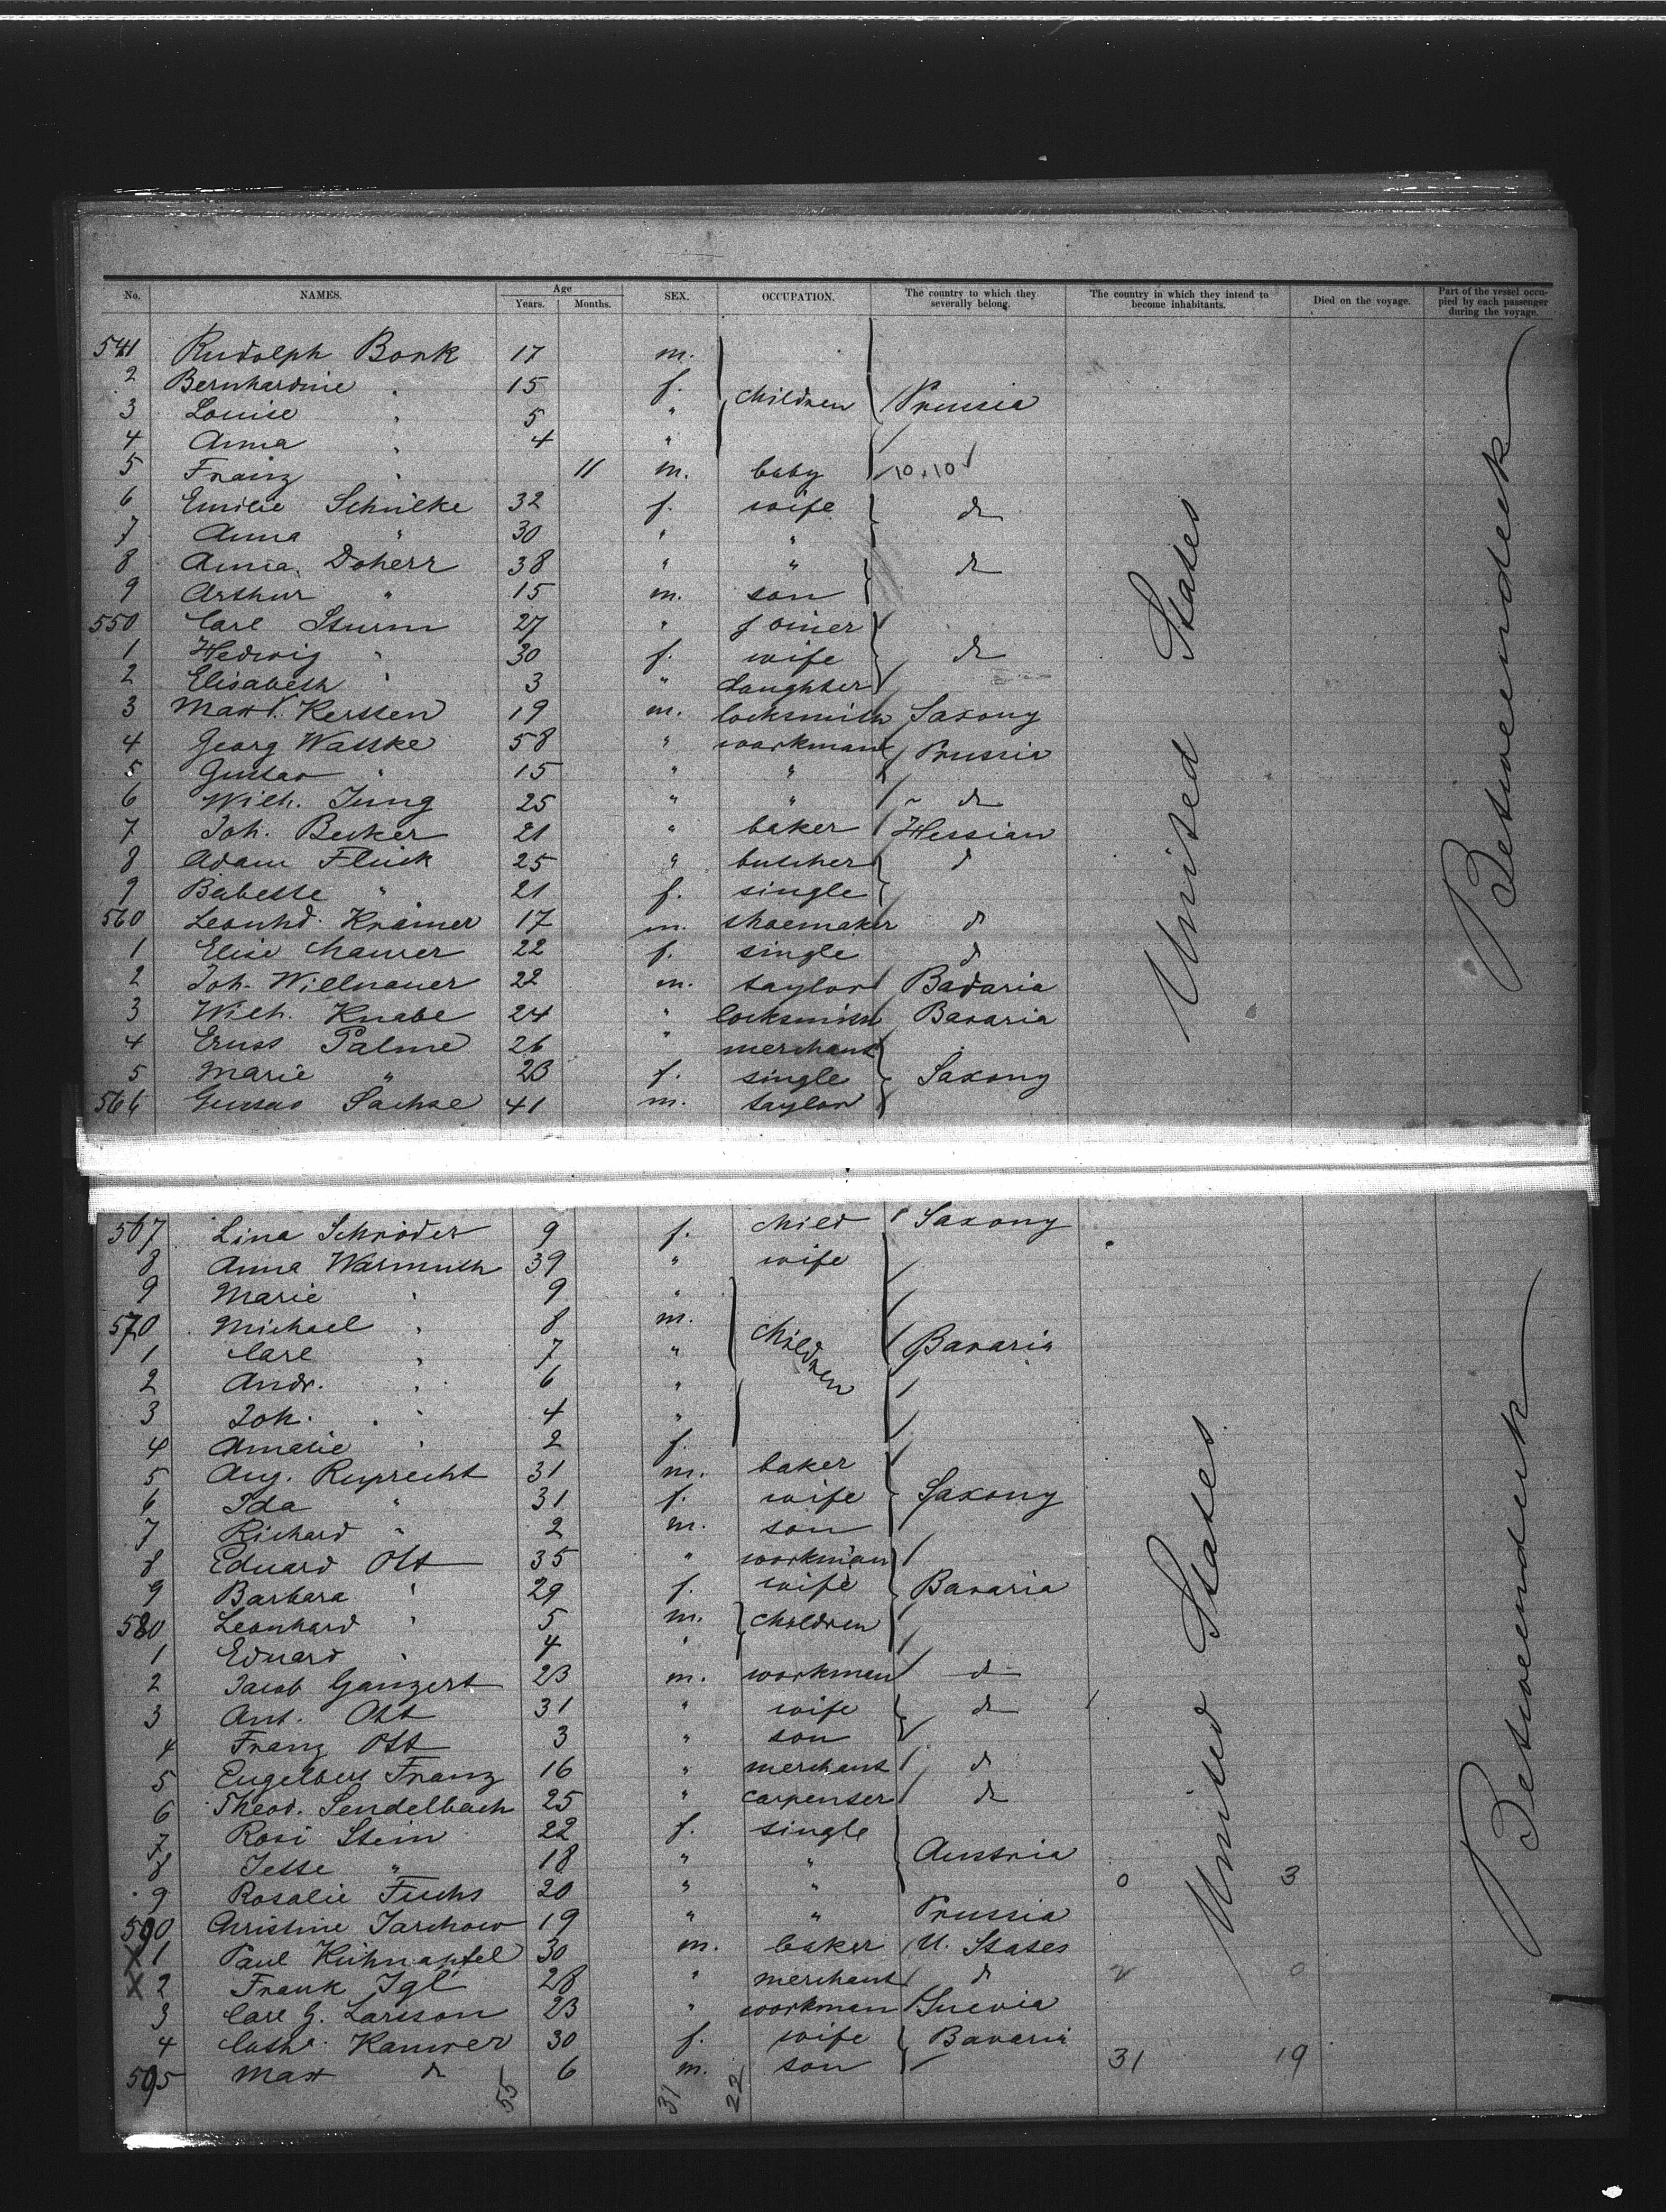 No. NAMES. Age Years. Months. SEX. OCCUPATION. The country to which they severally belong. The country in which they intend to become inhabitants. Died on the voyage. Part of the vessel occupied by each passenger during the voyage.
541 Rudolph Bonk 17 m.
2 Bernhardine " 15 f. children Prussia
3 Louise " 5 "
4 Anna " 4 "
5 Franz " 11 m. baby 10.10
6 Emilie Schülke 32 f. wife do
7 Anna " 30 " "
8 Anna Doherr 38 " " do
9 Arthur " 15 m. son
550 Carl Sturm 27 " joiner
1 Hedwig " 30 f. wife do
2 Elisabeth " 3 " daughter
3 Max Kersten 19 m. locksmith Saxony
4 Georg Watske 58 " workman Prussia
5 Gustav " 15 " "
6 Wilh. Jung 25 " " do
7 Joh. Becker 21 " baker Hessian
8 Adam Fluck 25 " butcher d
9 Babette " 21 f. single
560 Leonhd. Krämer 17 m. shoemaker d
1 Elise Maurer 22 f. single d
2 Joh. Willnauer 22 m. taylor Badaria
3 Wilh. Knabe 24 " locksmith Bavaria
4 Ernst Palme 26 " merchant
5 Marie " 23 f. single Saxony
566 Gustav Sachse 41 m. taylor
United States
Betweendeck
567 Lina Schröder 9 f. child Saxony
8 Anna Warmuth 39 " wife
9 Marie " 9 "
570 Michael " 8 m. children
1 Carl " 7 " Bavaria
2 Andr. " 6 "
3 Joh. " 4 "
4 Amalie " 2 f.
5 Aug. Ruprecht 31 m. baker
6 Ida " 31 f. wife Saxony
7 Richard " 2 m. son
8 Eduard Ott 35 " workman
9 Barbara " 29 f. wife Bavaria
580 Leonhard " 5 m. children
1 Eduard " 4 "
2 Jacob Ganzert 23 m. workman do
3 Ant. Ott 31 " wife do
4 Franz Ott 3 " son
5 Engelbert Franz 16 " merchant d
6 Theod. Sendelbach 25 " carpenter do
7 Rosi Stein 22 f. single
8 Jette " 18 " " Austria 0 3
9 Rosalie Fuchs 20 " "
590 Christine Jarchow 19 " " Prussia
X 1 Paul Kühnapfel 30 m. baker U. States
X 2 Frank Igl 28 " merchant d 2 0
3 Carl G. Larsson 23 " workman Suevia
4 Cath. Kamrer 30 f. wife Bavaria
595 Max do 6 m. son 31 19
55 31 22
United States
Betweendeck